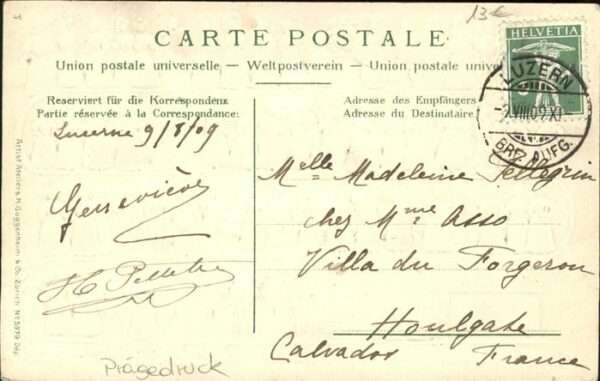 13€
CARTE POSTALE
Union postale universelle – Weltpostverein – Union postale unive
HELVETIA
LUZERN
VIII.09.XI
BRF. AUFG.
Reserviert für die Korrespondenz
Partie réservée à la Correspondance:
Adresse des Empfängers
Adresse du Destinataire
Lucerne 9/8/09
Geneviève
H Pelletier
Melle Madeleine Pellegrin
chez Mme Asso
Villa du Forgeron
Houlgate
Calvados France
Artist. Ateliers H. Guggenheim & Co., Zürich No. 5879 Dép.
Prägedruck